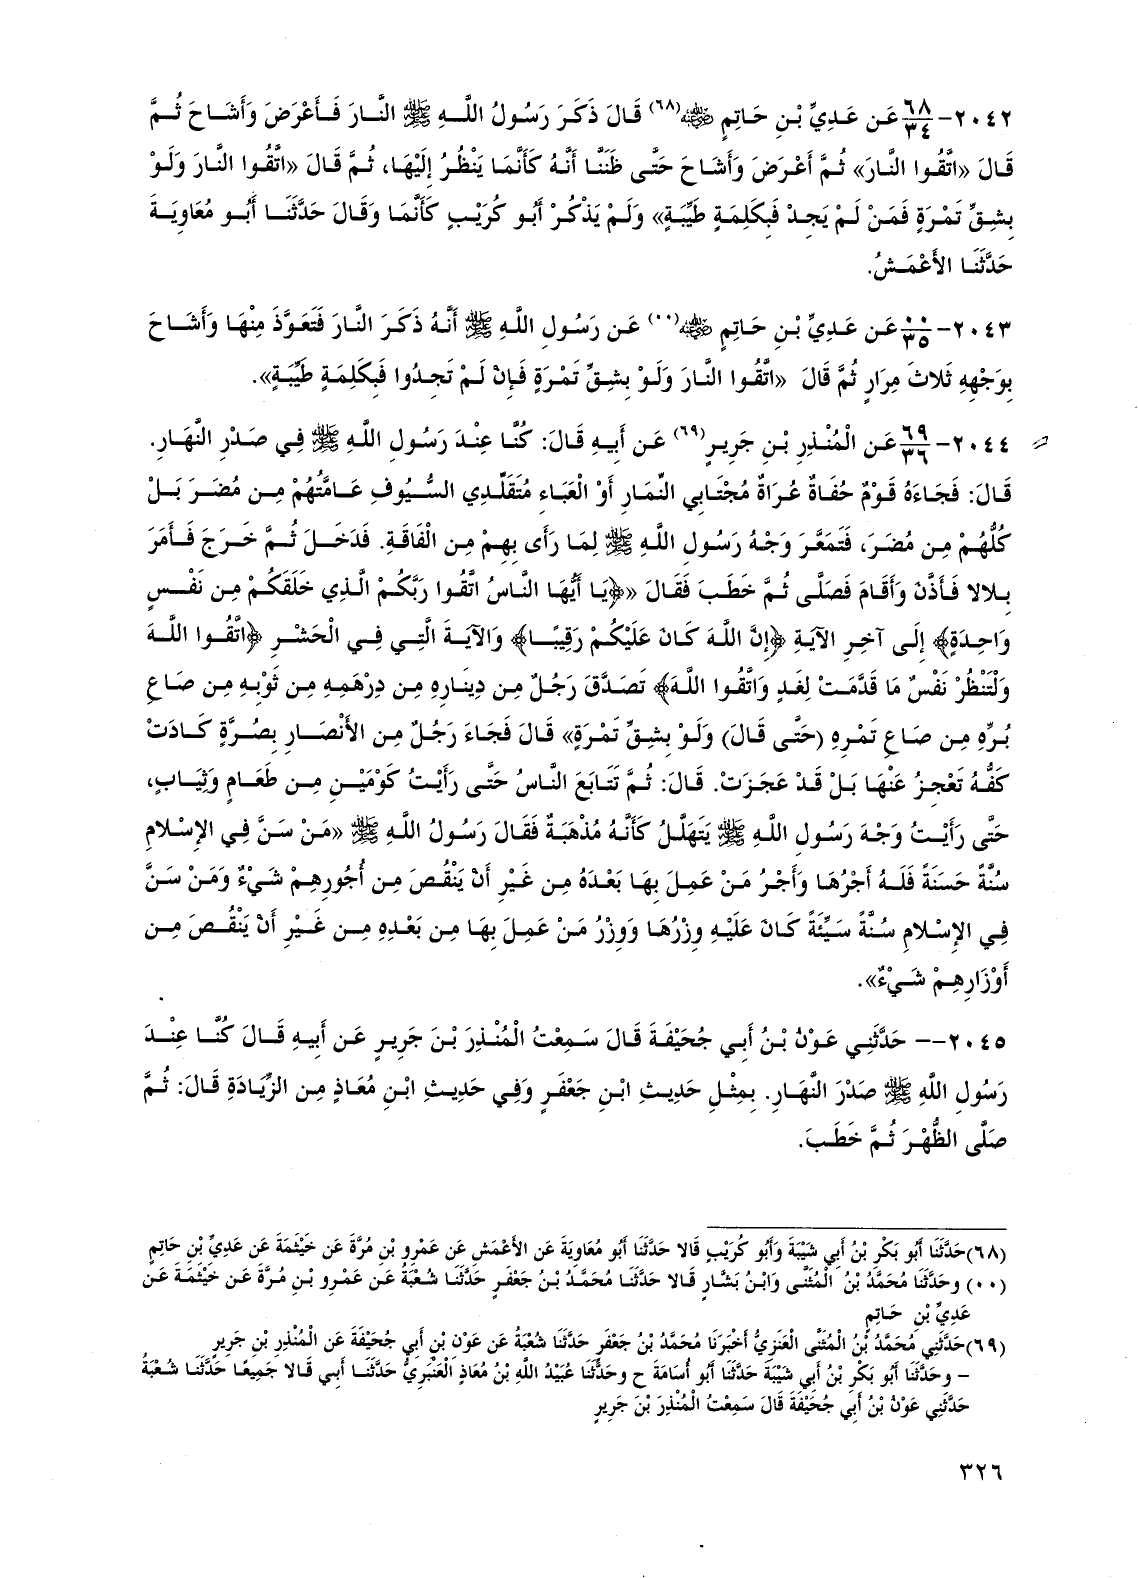 ٢٠٤٢-٦٨/٣٤ عَن عَدِيِّ بْنِ حَاتِمٍ ﵁(٦٨) قَالَ ذَكَرَ رَسُولُ اللَّهِ ﷺ النَّارَ فَأَعْرَضَ وَأَشَاحَ ثُمَّ
قَالَ «اتَّقُوا النَّارَ» ثُمَّ أَعْرَضَ وَأَشَاحَ حَتَّى ظَنَنَّا أَنَّهُ كَأَنَّمَا يَنْظُرُ إِلَيْهَا، ثُمَّ قَالَ «اتَّقُوا النَّارَ وَلَوْ
بِشِقِّ تَمْرَةٍ فَمَنْ لَمْ يَجِدْ فَبِكَلِمَةٍ طَيِّبَةٍ» وَلَمْ يَذْكُرْ أَبُو كُرَيْبٍ كَأَنَّمَا وَقَالَ حَدَّثَنَا أَبُو مُعَاوِيَةَ
حَدَّثَنَا الأَعْمَشُ.
٢٠٤٣-٠٠/٣٥ عَن عَدِيِّ بْنِ حَاتِمٍ ﵁(٠٠) عَن رَسُولِ اللَّهِ ﷺ أَنَّهُ ذَكَرَ النَّارَ فَتَعَوَّذَ مِنْهَا وَأَشَاحَ
بِوَجْهِهِ ثَلَاثَ مِرَارٍ ثُمَّ قَالَ «اتَّقُوا النَّارَ وَلَوْ بِشِقِّ تَمْرَةٍ فَإِنْ لَمْ تَجِدُوا فَبِكَلِمَةٍ طَيِّبَةٍ».
٢٠٤٤-٦٩/٣٦ عَن الْمُنْذِرِ بْنِ جَرِيرٍ(٦٩) عَن أَبِيهِ قَالَ: كُنَّا عِنْدَ رَسُولِ اللَّهِ ﷺ فِي صَدْرِ النَّهَارِ.
قَالَ: فَجَاءَهُ قَوْمٌ حُفَاةٌ عُرَاةٌ مُجْتَابِي النِّمَارِ أَوْ الْعَبَاءِ مُتَقَلِّدِي السُّيُوفِ عَامَّتُهُمْ مِن مُضَرَ بَلْ
كُلُّهُمْ مِن مُضَرَ، فَتَمَعَّرَ وَجْهُ رَسُولِ اللَّهِ ﷺ لِمَا رَأَى بِهِمْ مِن الْفَاقَةِ. فَدَخَلَ ثُمَّ خَرَجَ فَأَمَرَ
بِلالا فَأَذَّنَ وَأَقَامَ فَصَلَّى ثُمَّ خَطَبَ فَقَالَ «﴿يَا أَيُّهَا النَّاسُ اتَّقُوا رَبَّكُمْ الَّذِي خَلَقَكُمْ مِن نَفْسٍ
وَاحِدَةٍ﴾ إِلَى آخِرِ الآيَةِ ﴿إِنَّ اللَّهَ كَانَ عَلَيْكُمْ رَقِيبًا﴾ وَالآيَةَ الَّتِي فِي الْحَشْرِ ﴿اتَّقُوا اللَّهَ
وَلْتَنْظُرْ نَفْسٌ مَا قَدَّمَتْ لِغَدٍ وَاتَّقُوا اللَّهَ﴾ تَصَدَّقَ رَجُلٌ مِن دِينَارِهِ مِن دِرْهَمِهِ مِن ثَوْبِهِ مِن صَاعِ
بُرِّهِ مِن صَاعِ تَمْرِهِ (حَتَّى قَالَ) وَلَوْ بِشِقِّ تَمْرَةٍ» قَالَ فَجَاءَ رَجُلٌ مِن الأَنْصَارِ بِصُرَّةٍ كَادَتْ
كَفُّهُ تَعْجِزُ عَنْهَا بَلْ قَدْ عَجَزَتْ. قَالَ: ثُمَّ تَتَابَعَ النَّاسُ حَتَّى رَأَيْتُ كَوْمَيْنِ مِن طَعَامٍ وَثِيَابٍ،
حَتَّى رَأَيْتُ وَجْهَ رَسُولِ اللَّهِ ﷺ يَتَهَلَّلُ كَأَنَّهُ مُذْهَبَةٌ فَقَالَ رَسُولُ اللَّهِ ﷺ «مَنْ سَنَّ فِي الإِسْلامِ
سُنَّةً حَسَنَةً فَلَهُ أَجْرُهَا وَأَجْرُ مَنْ عَمِلَ بِهَا بَعْدَهُ مِن غَيْرِ أَنْ يَنْقُصَ مِن أُجُورِهِمْ شَيْءٌ وَمَنْ سَنَّ
فِي الإِسْلامِ سُنَّةً سَيِّئَةً كَانَ عَلَيْهِ وِزْرُهَا وَوِزْرُ مَنْ عَمِلَ بِهَا مِن بَعْدِهِ مِن غَيْرِ أَنْ يَنْقُصَ مِن
أَوْزَارِهِمْ شَيْءٌ».
٢٠٤٥-– حَدَّثَنِي عَوْنُ بْنُ أَبِي جُحَيْفَةَ قَالَ سَمِعْتُ الْمُنْذِرَ بْنَ جَرِيرٍ عَن أَبِيهِ قَالَ كُنَّا عِنْدَ
رَسُولِ اللَّهِ ﷺ صَدْرَ النَّهَارِ. بِمِثْلِ حَدِيثِ ابْنِ جَعْفَرٍ وَفِي حَدِيثِ ابْنِ مُعَاذٍ مِن الزِّيَادَةِ قَالَ: ثُمَّ
صَلَّى الظُّهْرَ ثُمَّ خَطَبَ.
(٦٨)حَدَّثَنَا أَبُو بَكْرِ بْنُ أَبِي شَيْبَةَ وَأَبُو كُرَيْبٍ قَالا حَدَّثَنَا أَبُو مُعَاوِيَةَ عَن الأَعْمَشِ عَن عَمْرِو بْنِ مُرَّةَ عَن خَيْثَمَةَ عَن عَدِيِّ بْنِ حَاتِمٍ
(٠٠) وحَدَّثَنَا مُحَمَّدُ بْنُ الْمُثَنَّى وَابْنُ بَشَّارٍ قَالا حَدَّثَنَا مُحَمَّدُ بْنُ جَعْفَرٍ حَدَّثَنَا شُعْبَةُ عَن عَمْرِو بْنِ مُرَّةَ عَن خَيْثَمَةَ عَن
عَدِيِّ بْنِ حَاتِمٍ
(٦٩)حَدَّثَنِي مُحَمَّدُ بْنُ الْمُثَنَّى الْعَنَزِيُّ أَخْبَرَنَا مُحَمَّدُ بْنُ جَعْفَرٍ حَدَّثَنَا شُعْبَةُ عَن عَوْنِ بْنِ أَبِي جُحَيْفَةَ عَن الْمُنْذِرِ بْنِ جَرِيرٍ
– وحَدَّثَنَا أَبُو بَكْرِ بْنُ أَبِي شَيْبَةَ حَدَّثَنَا أَبُو أُسَامَةَ ح وحَدَّثَنَا عُبَيْدُ اللَّهِ بْنُ مُعَاذٍ الْعَنْبَرِيُّ حَدَّثَنَا أَبِي قَالا جَمِيعًا حَدَّثَنَا شُعْبَةُ
حَدَّثَنِي عَوْنُ بْنُ أَبِي جُحَيْفَةَ قَالَ سَمِعْتُ الْمُنْذِرَ بْنَ جَرِيرٍ
٣٢٦